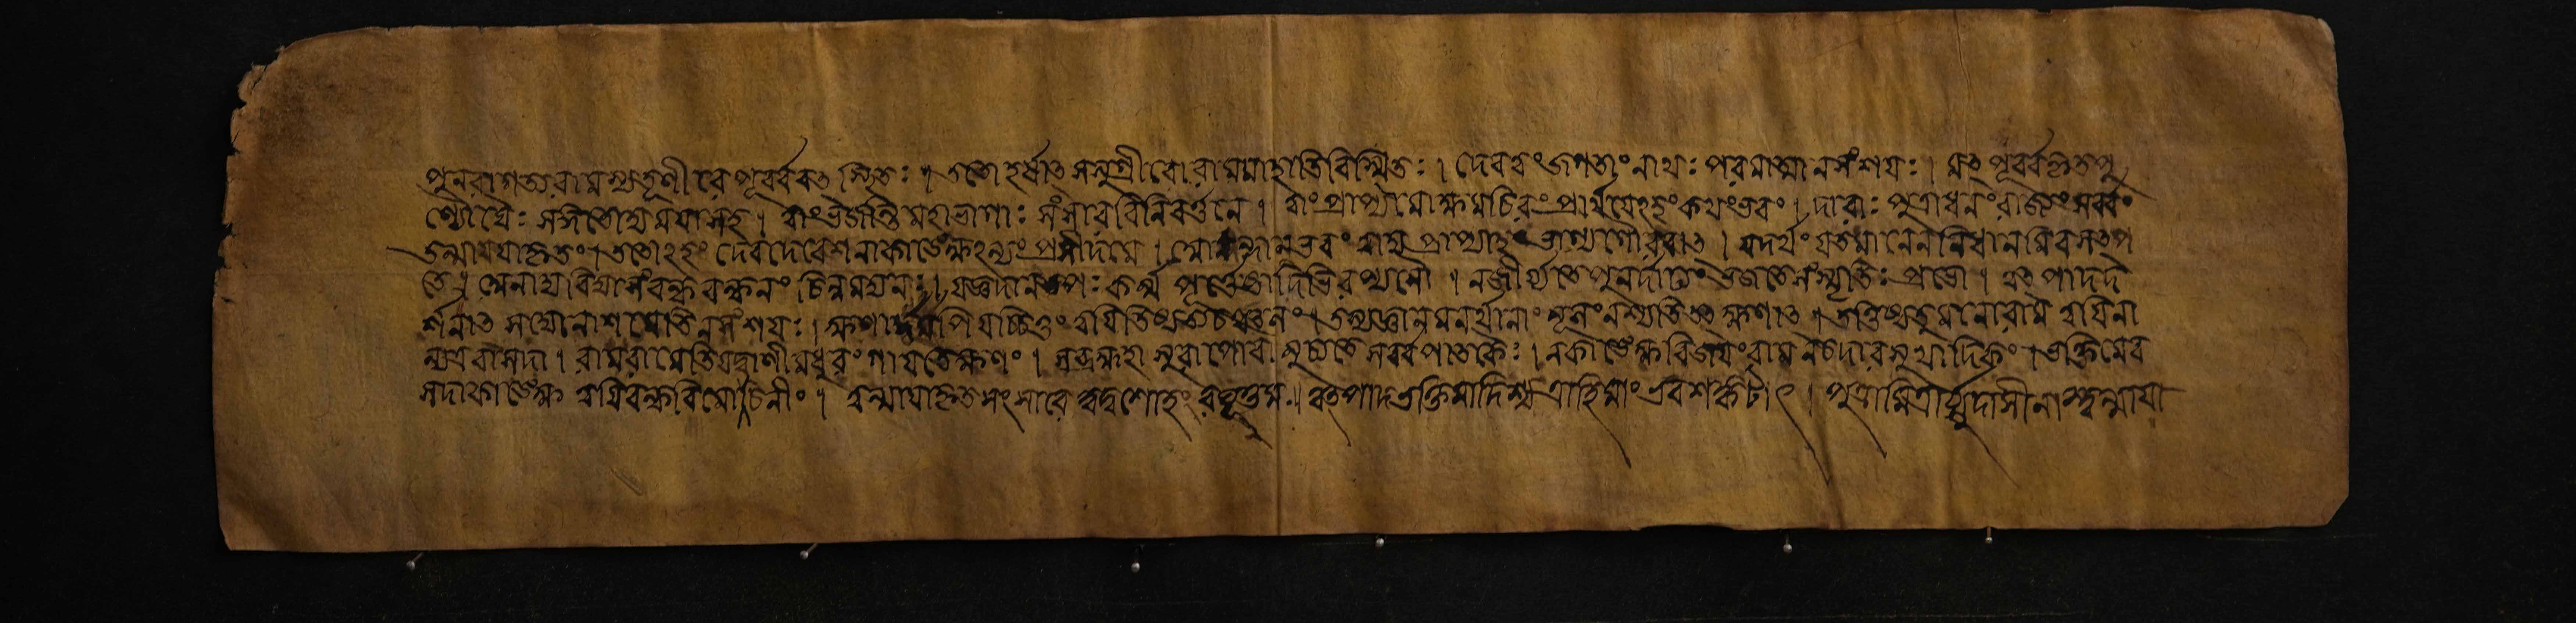 পুনরাগত্য রামস্য তূণীরে পূর্ব্ববৎ স্থিতঃ । ততো হর্ষাৎ স সুগ্রীবো রামমাহাতিবিস্মিতঃ । দেব ত্বং জগতাং নাথঃ পরমাত্মা ন সংশয়ঃ । মৎ পূর্ব্বকৃত পু
ণ্যৌঘৈঃ সঙ্গতোদ্য ময়া সহ । ত্বাং ভজন্তি মহাত্মানঃ সংসারবিনিবর্ত্তনে । ত্বাং প্রাপ্য মোক্ষমচিরং প্রার্থয়েঽহং কথং ভবং । দারাঃ পুত্রা ধনং রাজ্যং সর্ব্বং
ত্বন্মায়য়া কৃতং । অতোঽহং দেবদেবেশ নাকাঙ্ক্ষেঽন্যং প্রসীদ মে । আনন্দানুভবং ত্বাদ্য প্রাপ্তোহং ভাগ্যগৌরবাৎ । মৃদর্থং যতমানেন নিধানমিব সৎপ
তে । অনাদ্যবিদ্যাসংবদ্ধ বন্ধনং ছিন্নমদ্য নঃ । যজ্ঞদানতপঃকর্ম্ম পূর্ত্তেষ্টাদিভিরপ্যসৌ । ন জীর্য্যতে পুনর্দার্ঢ্যং ভজতে সংসৃতিঃ প্রভো । ত্বৎপাদদ
র্শনাৎ সদ্যো নাশমেতি ন সংশয়ঃ । ক্ষণার্দ্ধমপি যচ্চিত্তং ত্বয়ি তিষ্ঠতি চঞ্চলং । তস্যাজ্ঞানমনর্থানাং মূলং নশ্যতি তৎক্ষণাৎ । তত্তিষ্ঠতু মনো রাম ত্বয়ি না
ন্যত্র বা সদা । রামরামেতি যদ্বাণী মধুরং গায়তে ক্ষণং । স ব্রহ্মহা সুরাপো বা মুচ্যতে সর্ব্বপাতকৈঃ । ন কাঙ্ক্ষে বিজয়ং রাম ন চ দারসুখাদিকং । ভক্তিমেব
সদা কাঙ্ক্ষে ত্বয়ি বন্ধবিমোচনীং । ত্বন্মায়াকৃতসংসারে ত্বদ্বশোহং রঘূত্তম । ত্বৎপাদভক্তিমাদিশ্য ত্রাহি মাং ভবশঙ্কটাৎ । পুত্রামিত্রার্য্যুদাসীনা স্ত্বন্মায়া